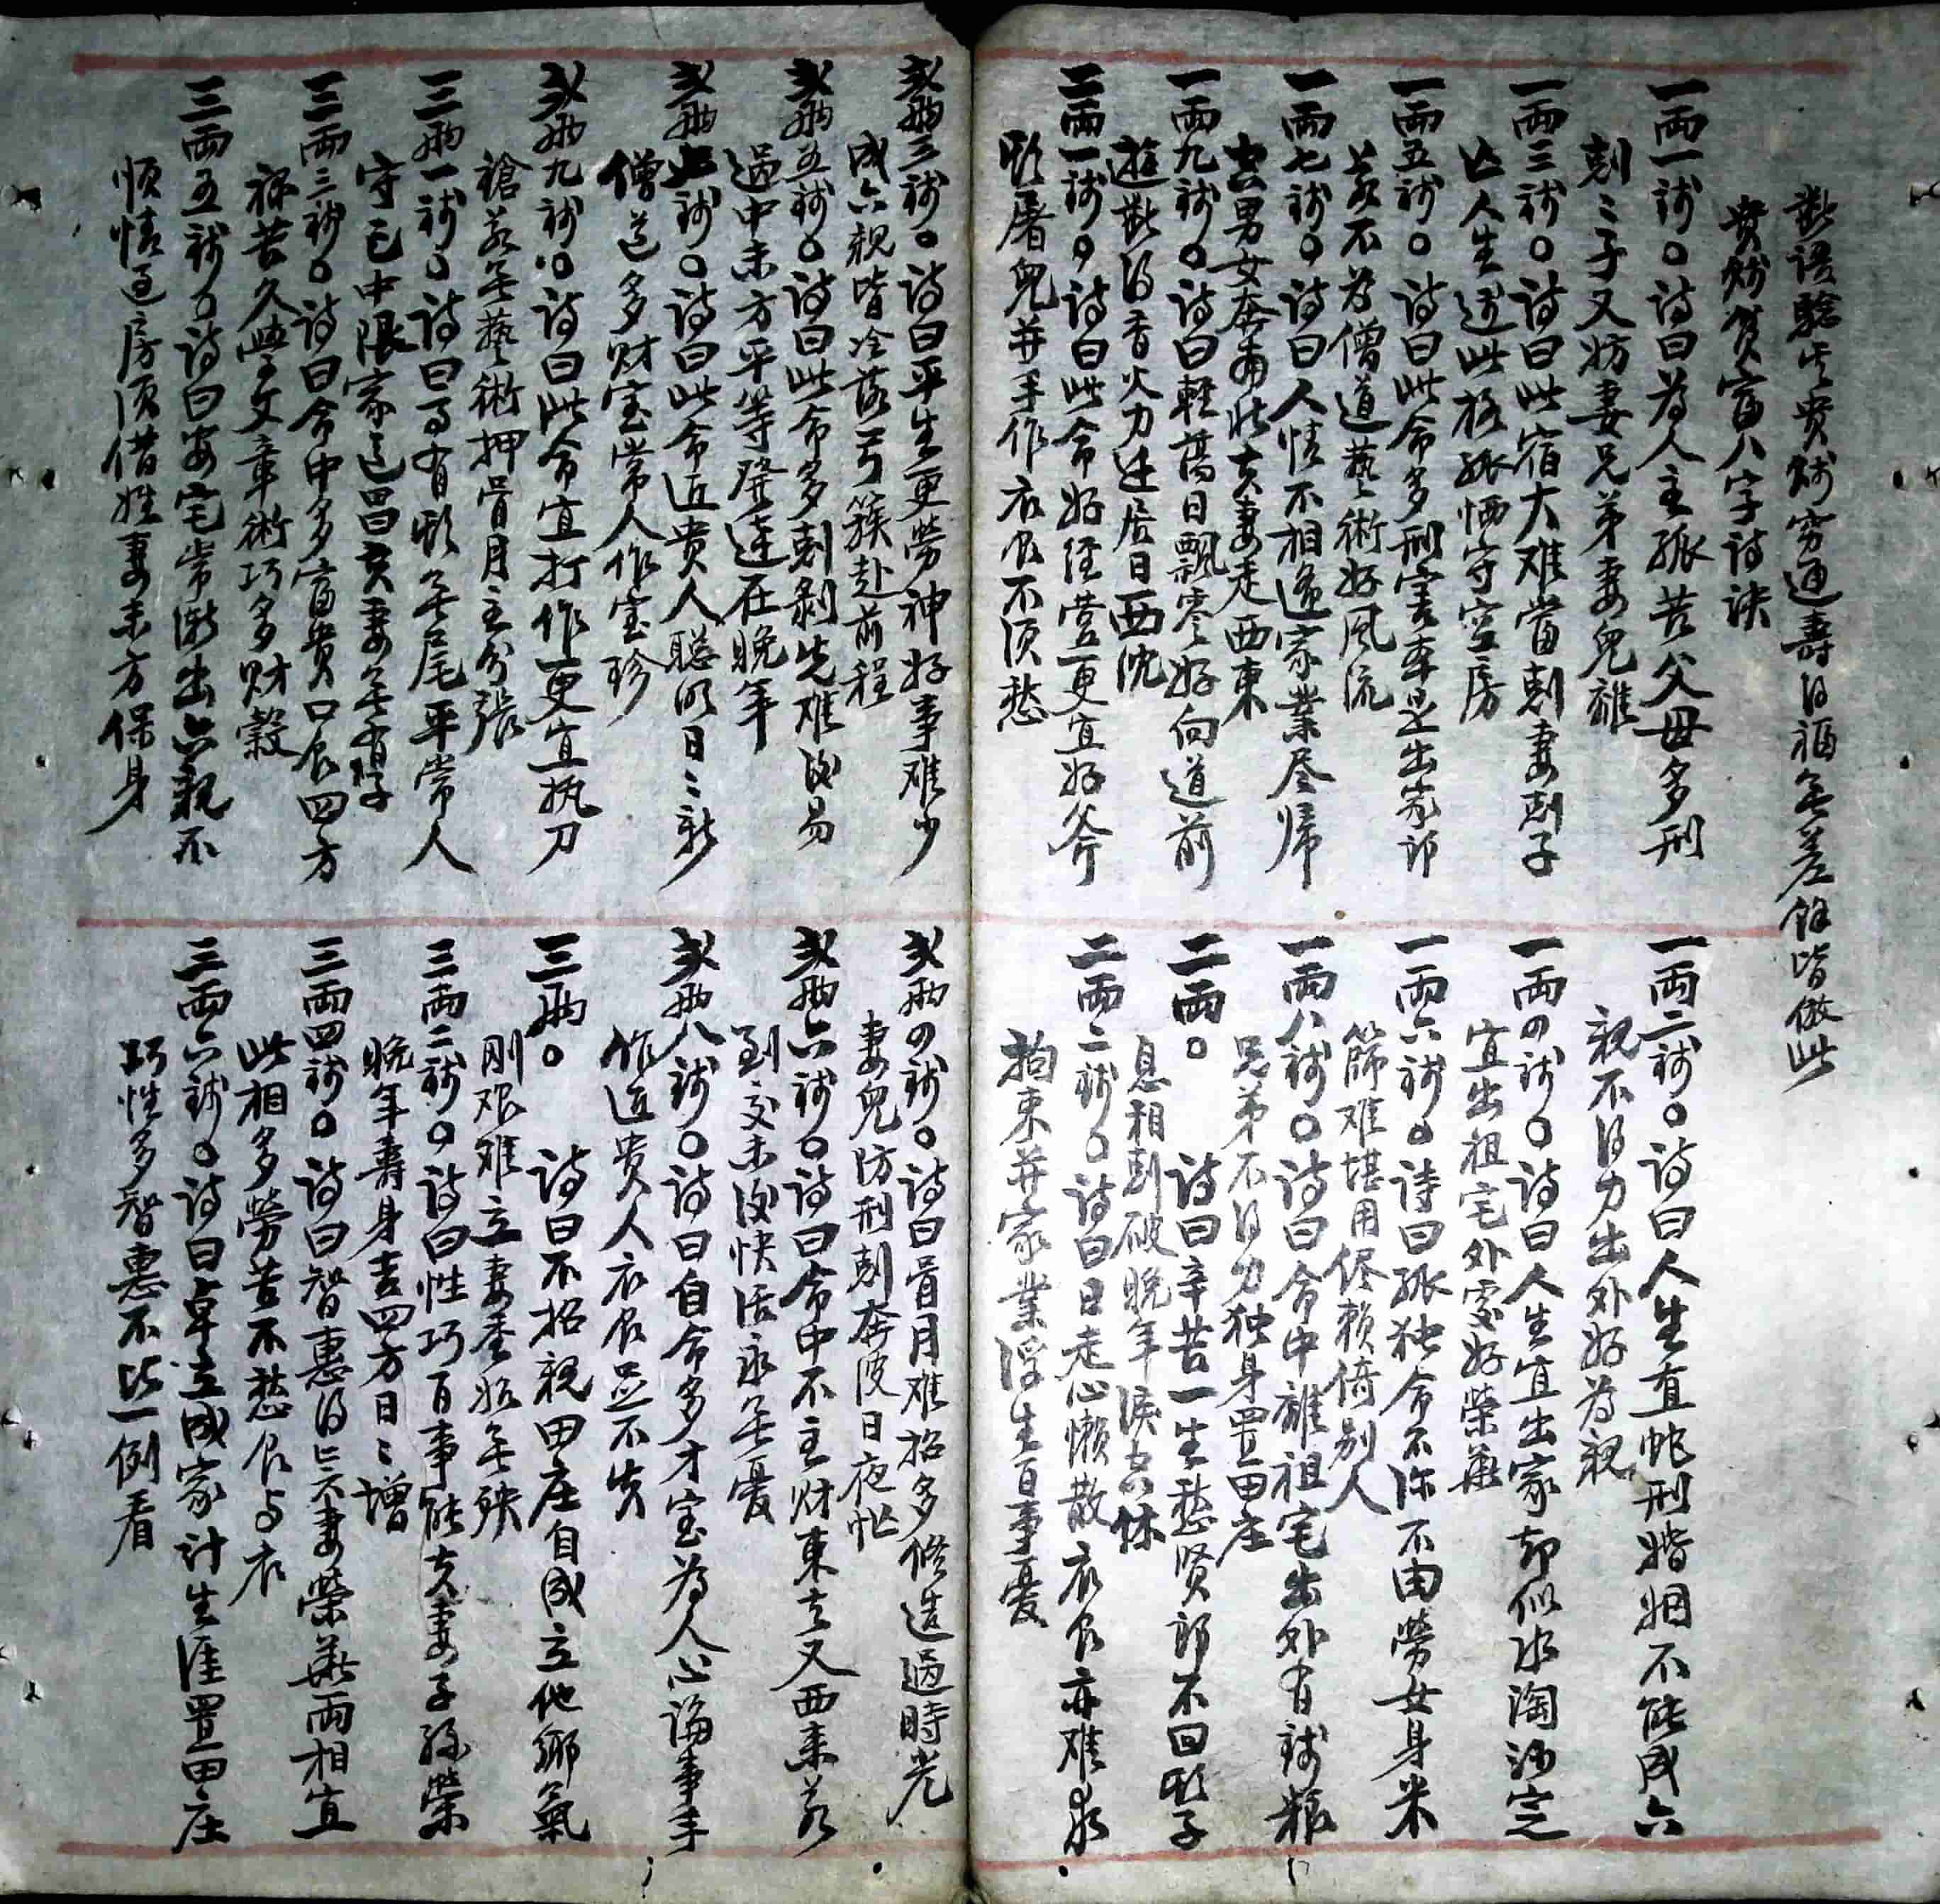 斷語驗其貴賤窮通壽得福無差餘皆倣此
貴賤貧富八字詩訣
一両一錢○詩曰為人主孤苦父母多刑
剋〻子又妨妻兄弟妻兒離
一両三錢○詩曰此宿大难當剋妻剋子
亡人生逢此格孤恓守空房
一両五錢○詩曰此命多刑害奉是出家郎
若不為僧道藝術好風流
一両七錢○詩曰人情不相逢家業尽歸
空男女奔南北夫妻走西東
一両九錢○詩曰輕薄日飄零好向道前
遊斷得香火力迁居日西沈
二両一錢○詩曰此命好經营更宜好斧
頭屠兒并手作衣食不須愁
一両二錢○詩曰人生直蛇刑婚姻不能成六
親不得力出外好為親
一両四錢○詩曰人生宜出家却似水淘沙定
宜出祖宅外處好榮華
一両六錢○詩曰孤独命不你不由勞女身米
篩难堪用侭賴倚别人
一両八錢○詩曰命中離祖宅出外有錢粮
兄弟不得力独身置田庄
二両○ 詩曰辛苦一生愁贤郎不回頭子
息相剋破晚年淚六休
二両二錢○詩曰日走心懶散衣食亦难求
拘束并家業浮生百事憂
弍両三錢○詩曰平生更勞神好事难少
成六親皆冷落弓簇赴前程
弍両五錢○詩曰此命多剋剝先难後易
過中末方平等發達在晚年
弍両七錢○詩曰此命近贵人聪明日〻新
僧道多财宝常人作宝珍
弍両九錢○詩曰此命宜打作更宜执刀
鎗若無藝術押骨月主分張
三両一錢○詩曰為有頭無尾平常人
守已中限家道昌夫妻無有好
三両三錢○詩曰命中多富贵口食四方
禄苦久與文章術巧多财穀
三両五錢○詩曰安宅常漸出六親不
順情逼房須借姓妻末方保身
弍両四錢○詩曰骨月难招多修造過時光
妻兒防刑剋奔波日夜忙
弍両六錢○詩曰命中不主财東去又西来若
到交末後快活永無憂
弍両八錢○詩曰自命多才宝為人心論事手
作近贵人衣食足不失
三両○ 詩曰不招親田庄自成立他鄉氣
刚艰难立妻重始無殃
三両二錢○詩曰性巧百事能夫妻子孫榮
晚年壽身吉四方日〻增
三両四錢○詩曰智惠得亡不妻榮華両相宜
此相多勞苦不愁食与衣
三両六錢○詩曰卓立成家计生涯置田庄
巧性多智惠不比一例看